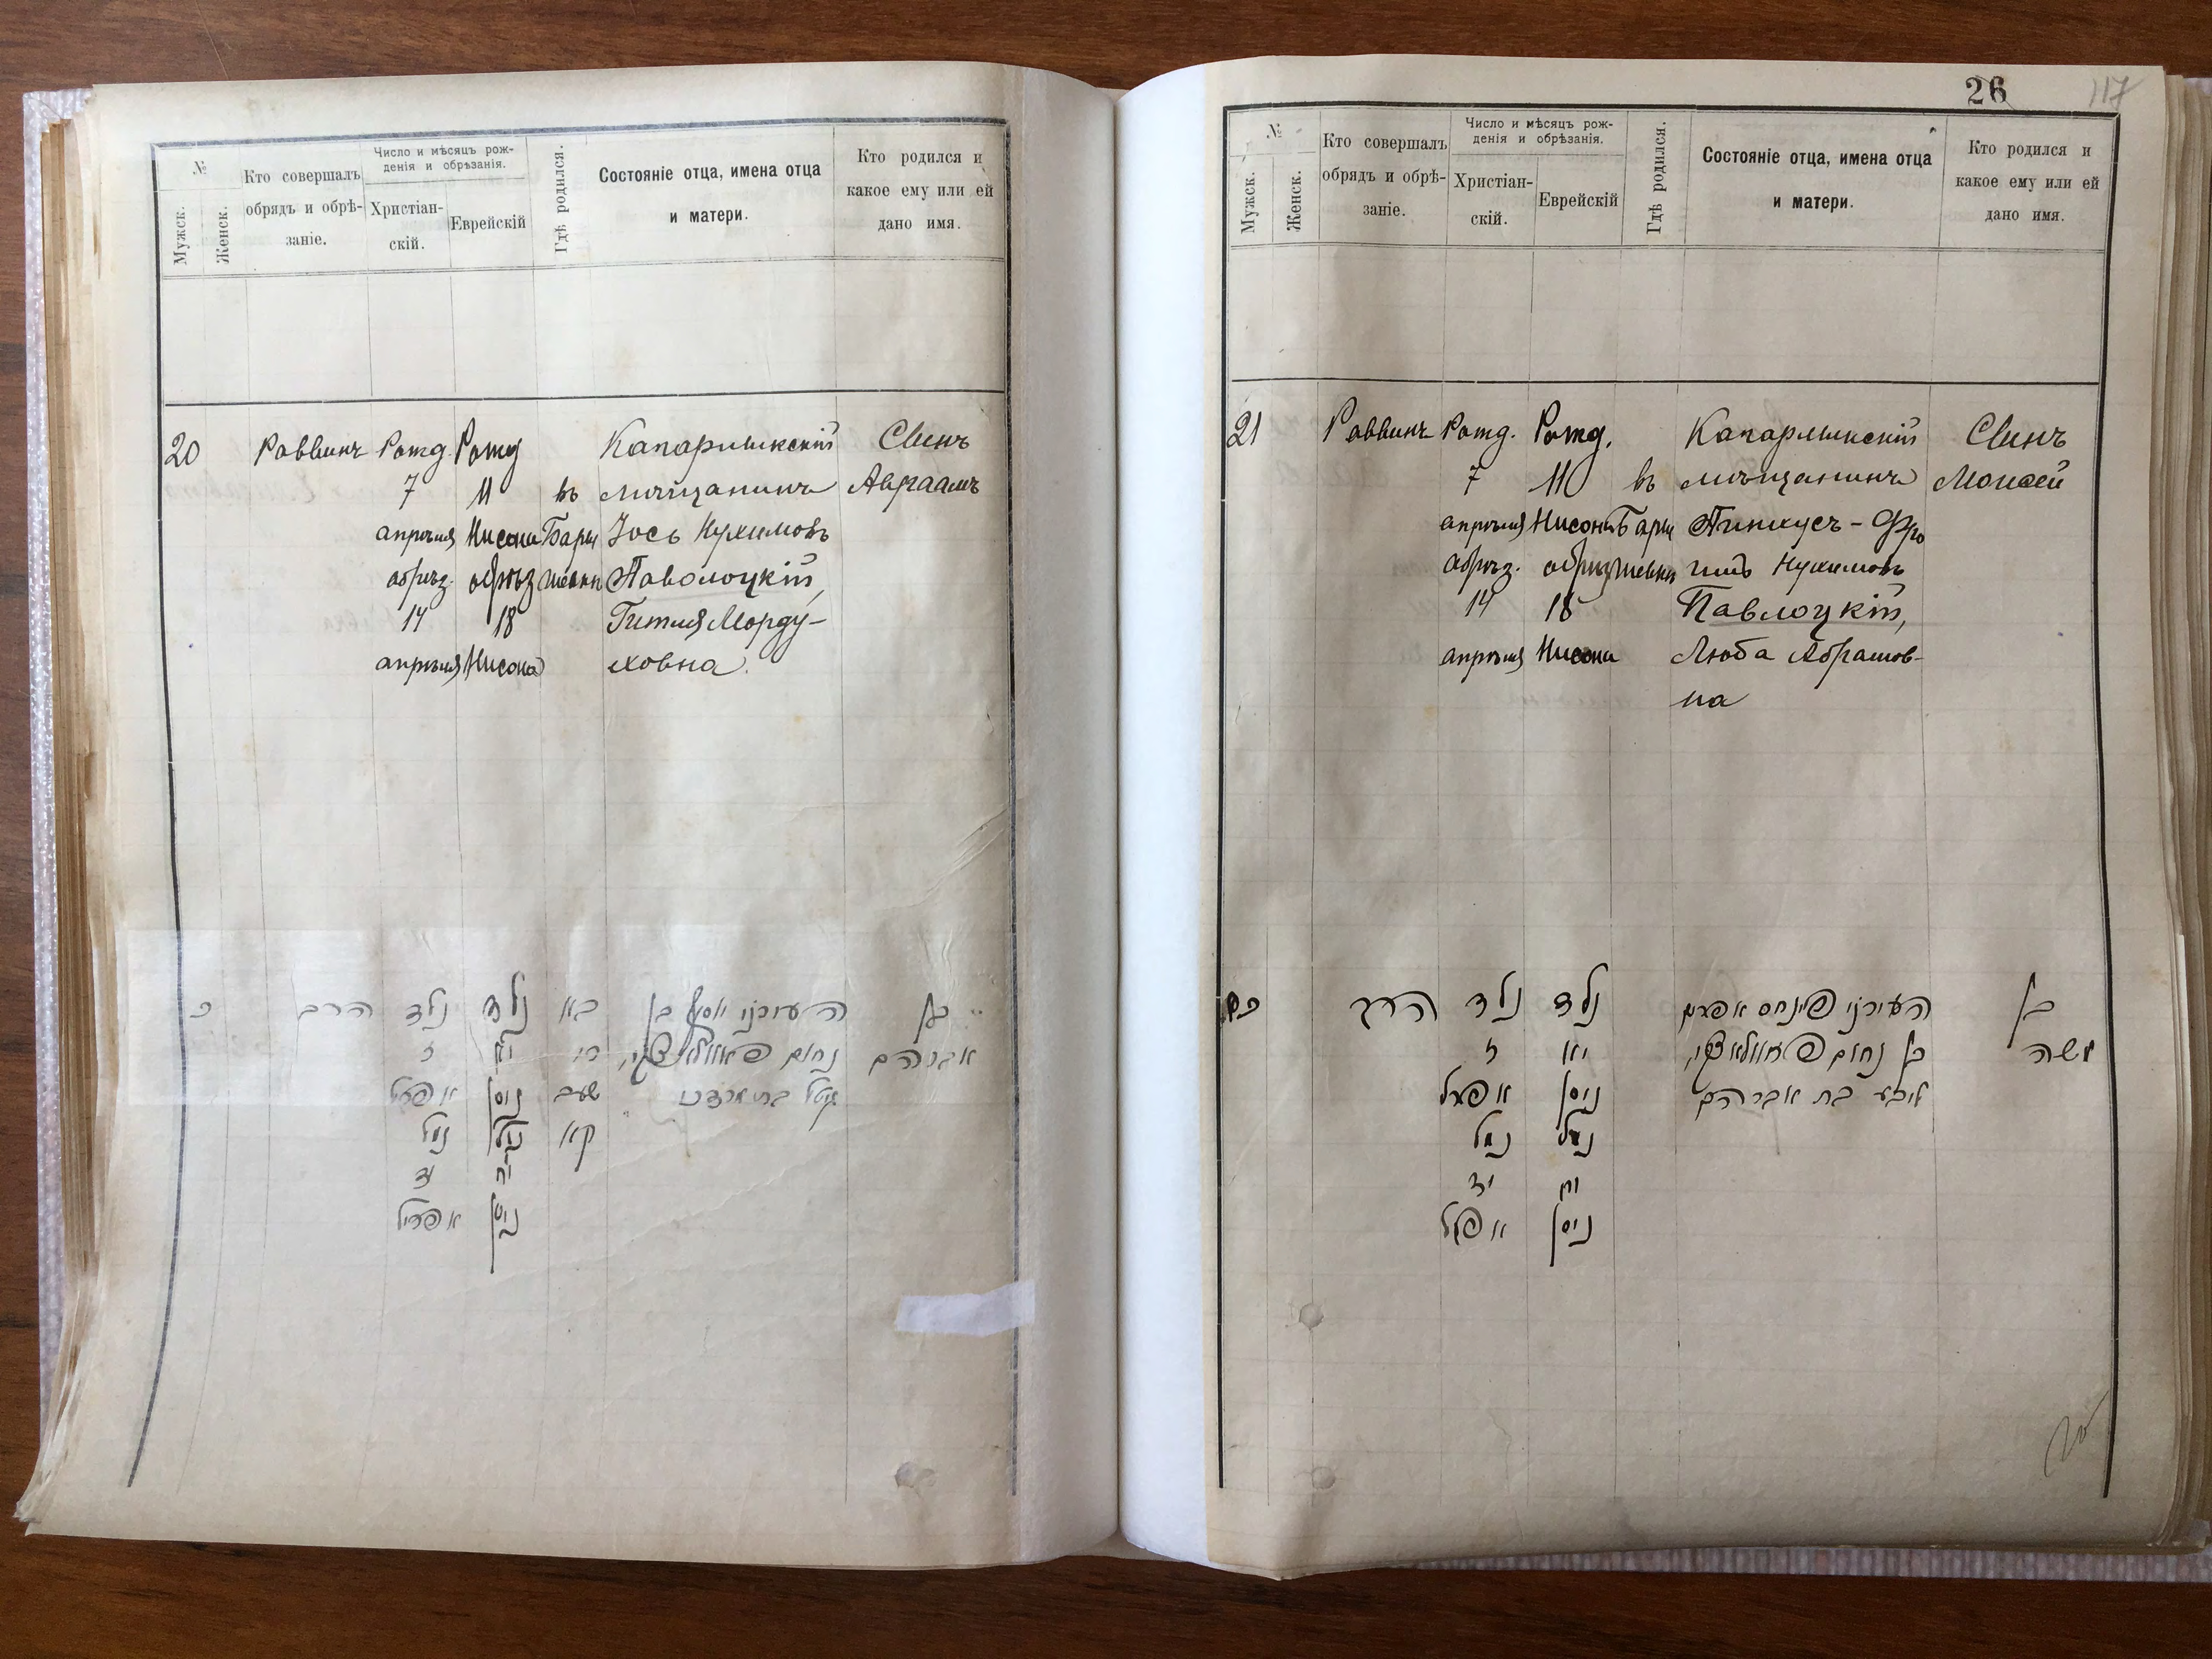 №
Мужск.
Женск.
Кто совершалъ
обрядъ и обрѣ-
заніе.
Число и мѣсяцъ рож-
денія и обрѣзанія.
Христіан-
скій.
Еврейскій
Гдѣ родился.
Состояніе отца, имена отца
и матери.
Кто родился и
какое ему или ей
дано имя.
20
Раввинъ
Рожд.
7
апрѣля
обрѣз.
14
апрѣля
Рожд
11
Нисона
обрѣз
18
Нисона
въ
Бары
шевки
Кагарлыкскій
мѣщанинъ
Іось Нухимовъ
Паволоцкій,
Гитля Морду-
ховна.
Сынъ
Авраамъ
כ
הרב
נולד
ז
אפריל
נמול
יד
אפריל
נולד
יא
ניסן
נמול
יח
ניסן
בא
רי
שעב
קא
העירוני יוסף בן
נחום פאוואלאצקי,
גיטל בת מרדכי
בן
אברהם
26
117
№
Мужск.
Женск.
Кто совершалъ
обрядъ и обрѣ-
заніе.
Число и мѣсяцъ рож-
денія и обрѣзанія.
Христіан-
скій.
Еврейскій
Гдѣ родился.
Состояніе отца, имена отца
и матери.
Кто родился и
какое ему или ей
дано имя.
21
Раввинъ
Рожд.
7
апрѣля
обрѣз.
14
апрѣля
Рожд.
11
Нисона
обрѣз
18
Нисона
въ
Бары
шевки
Кагарлыкскій
мѣщанинъ
Пинкусъ-Фро
имъ Нухимовъ
Павлоцкій,
Люба Абрамов-
на
Сынъ
Моисей
הרב
נולד
ז
אפריל
נמול
יד
אפריל
נולד
יא
ניסן
נמול
יח
ניסן
העירוני פינחס אפרים
בן נחום פאוואלאצקי,
ליבע בת אברהם
בן
משה